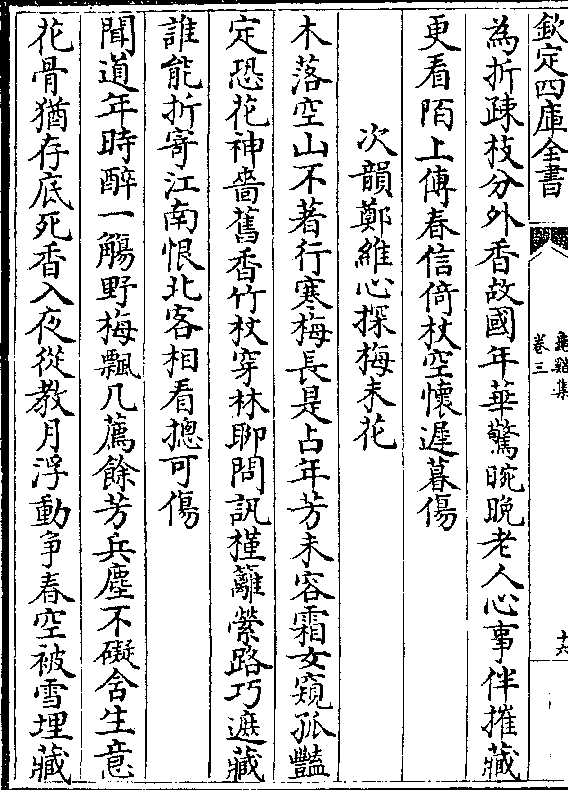 欽定四庫全書
龜谿集
卷三
十六
為折疎枝分外香故國年華驚晼晚老人心事伴摧藏
更看陌上傳春信倚杖空懷遲暮傷
次韻鄭維心探梅未花
木落空山不著行寒梅長是占年芳未容霜女窺孤豔
定恐花神嗇舊香竹杖穿林聊問訊槿籬縈路巧遮藏
誰能折寄江南恨北客相看摠可傷
聞道年時醉一觴野梅飄几薦餘芳兵塵不礙含生意
花骨猶存底死香入夜從教月浮動争春空被雪埋藏